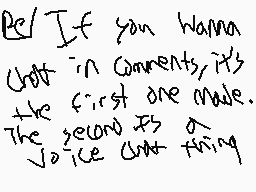 Be/ If you wanna
chat in comments, it's
the first one made.
The second Is a
voice chat thing